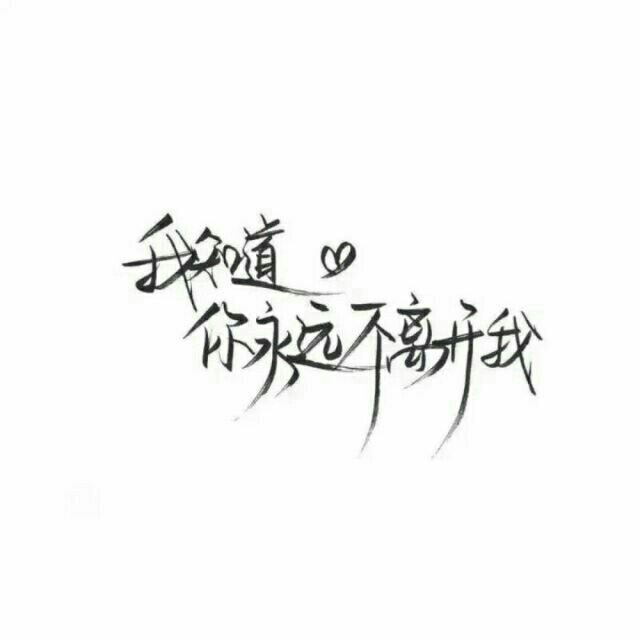 我知道
你永远不离开我